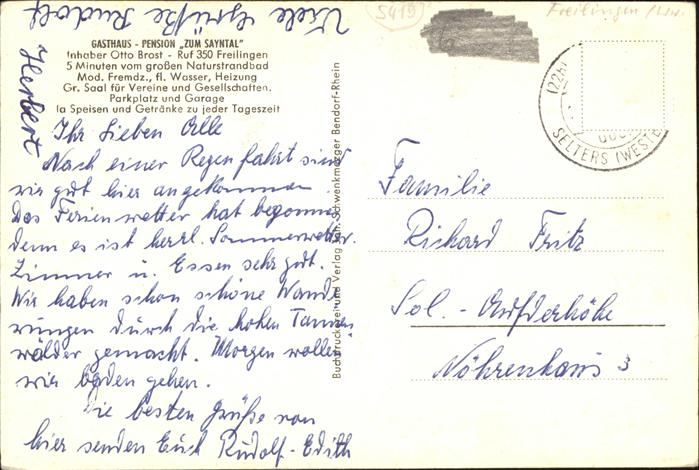 Viele Grüße Rudolf
Herbert
54197
Freilingen /Ww.
GASTHAUS - PENSION „ZUM SAYNTAL"
Inhaber Otto Brost - Ruf 350 Freilingen
5 Minuten vom großen Naturstrandbad
Mod. Fremdz., fl. Wasser, Heizung
Gr. Saal für Vereine und Gesellschaften.
Parkplatz und Garage
Ia Speisen und Getränke zu jeder Tageszeit
Ihr Lieben Alle
Nach einer Regenfahrt sind
wir gut hier angekommen.
Das Ferienwetter hat begonnen
denn es ist herrl. Sommerwetter.
Zimmer u. Essen sehr gut.
Wir haben schon schöne Wande
rungen durch die hohen Tannen
wälder gemacht. Morgen wollen
wir baden gehen.
Die besten Grüße von
hier senden Euch Rudolf - Edith
Buchdruckerei und Verlag Schwenkmezger Bendorf-Rhein
SELTERS (WESTE
Familie
Richard Fritz
Sol. - Aufderhöhe
Nöhrenhaus 3